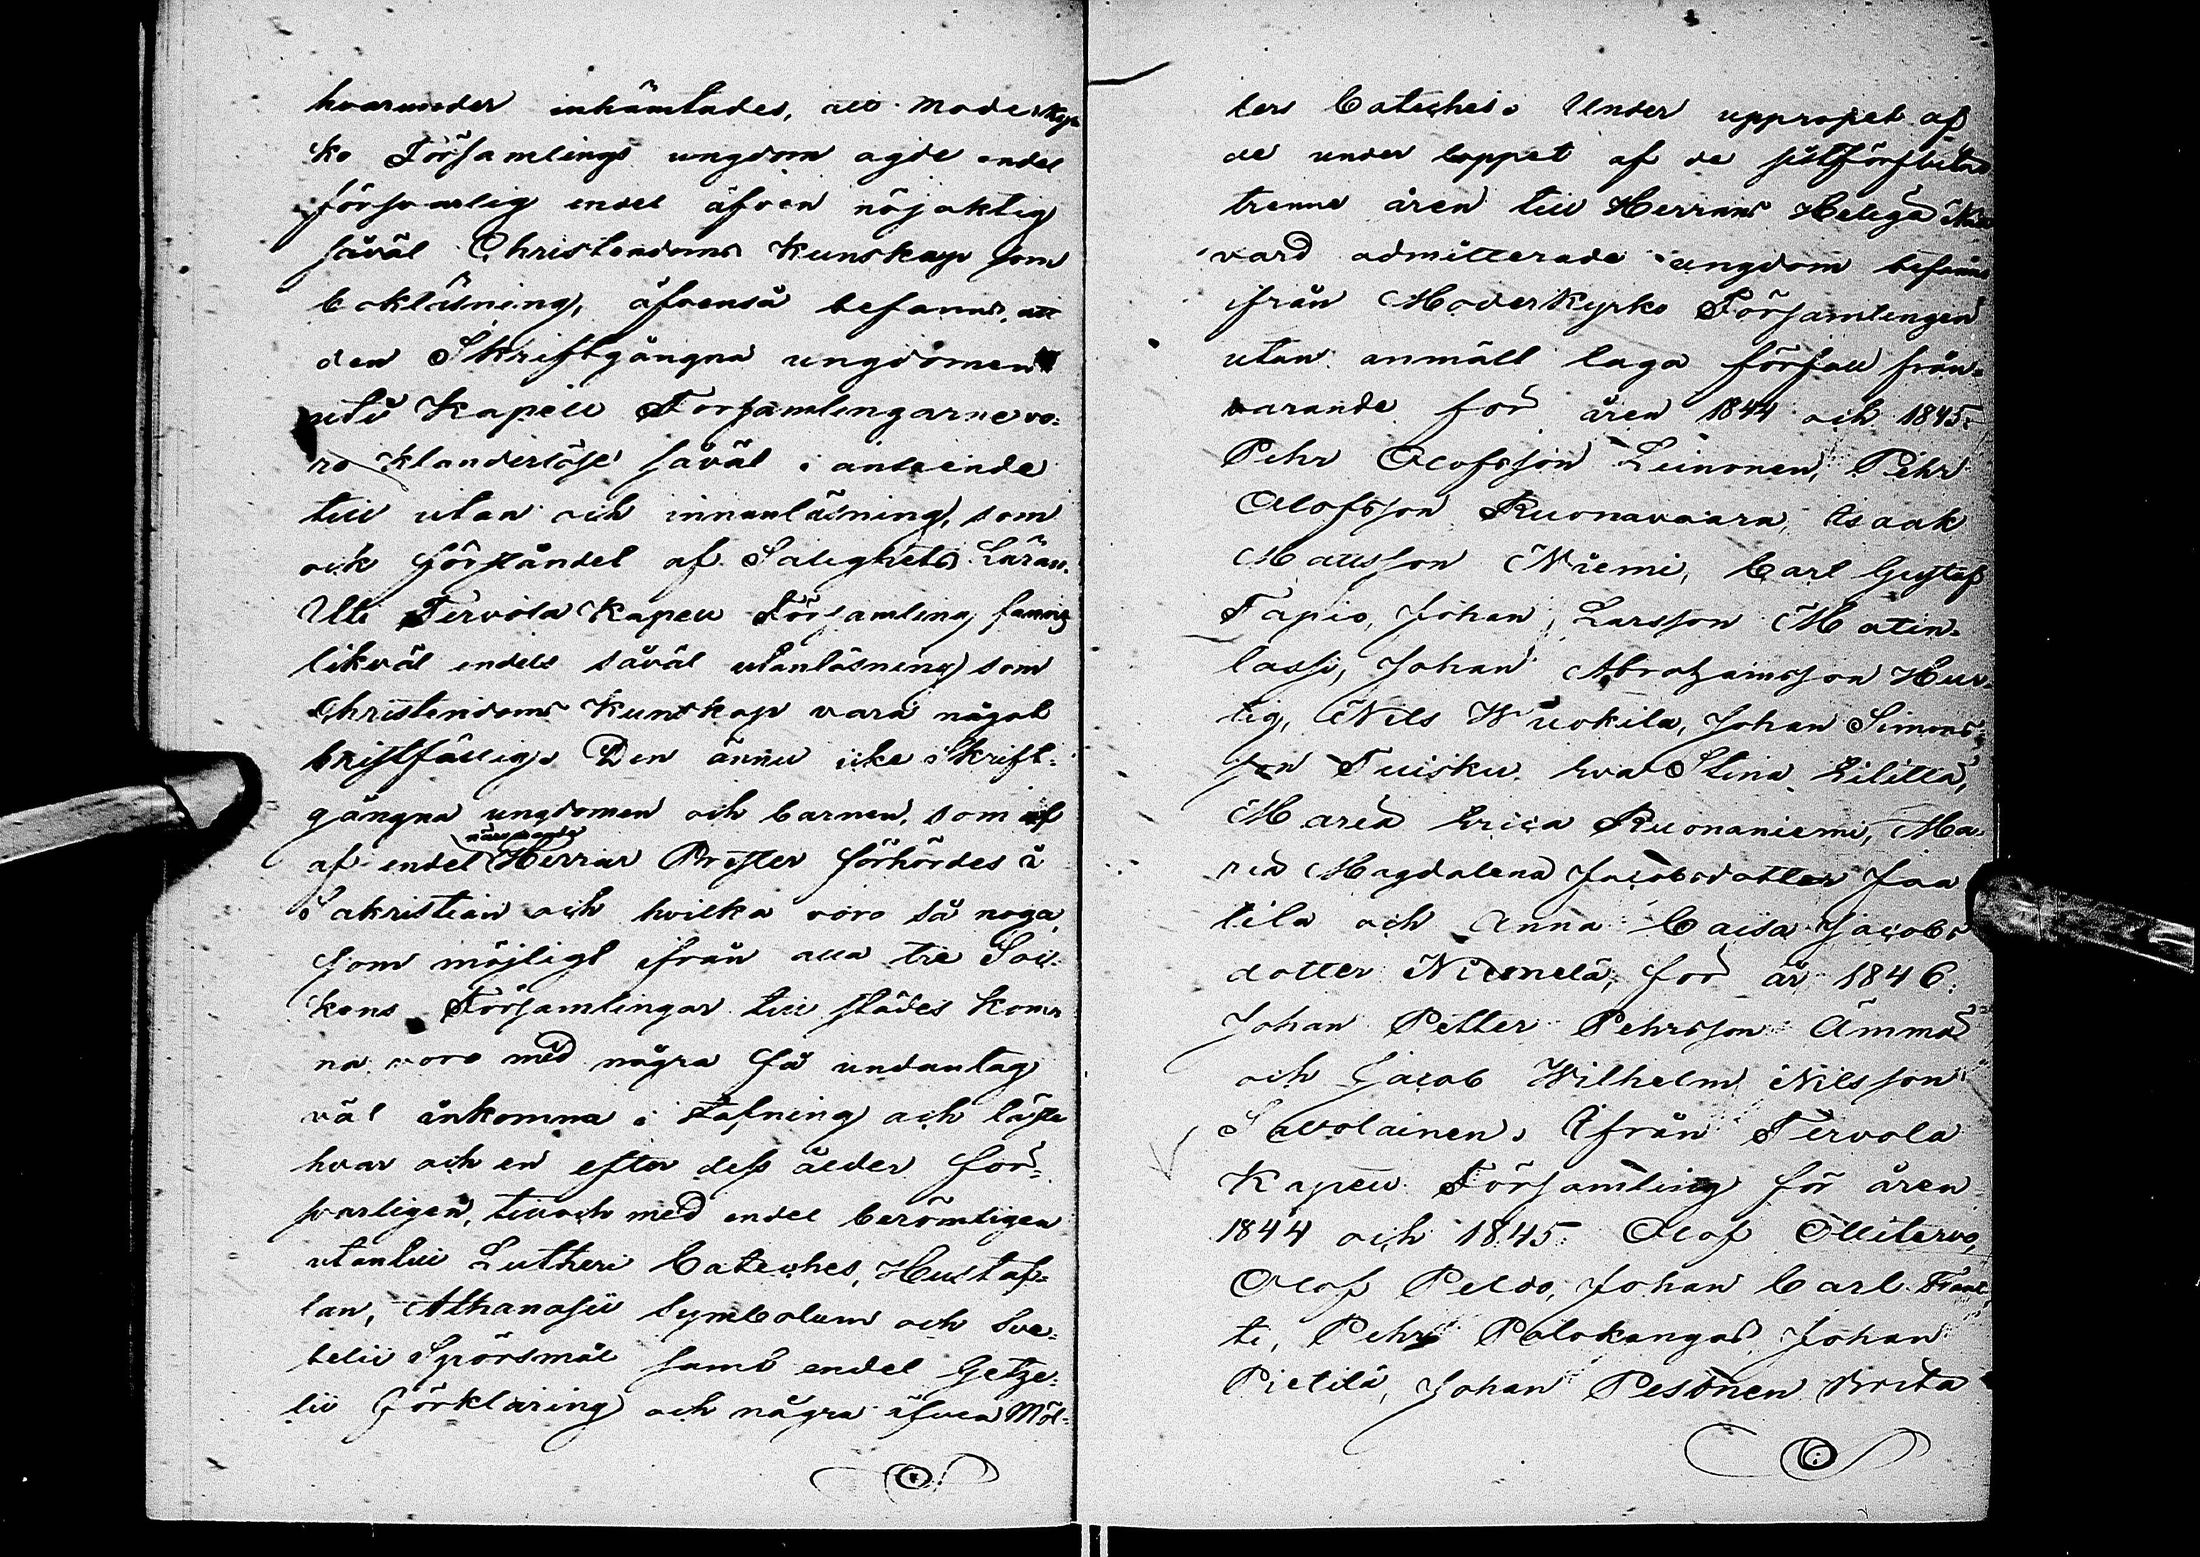 hvarunder inhämtades, att Moderkyr
ko Församlings ungdom ägde endel
försvarlig endel äfven nöjaktig
såväl Christendoms Kunskap som
bokläsning, äfvenså befanns, att
den Skriftgångna ungdomen
uti Kapell Församlingarne vo-
ro klanderlöse såväl i anseende
till utan och innanläsning, som
ock förståndet af Salighets Läran.
Uti Tervola Kapell Församling fanns
likväl endels såväl utanläsning som
Christendoms Kunskap vara något
bristfällig. Den ännu icke Skrift-
gångna ungdomen och barnen, som af
närvarande
af endel Herrar Prester förhördes i
Sakristian och hvilka voro så noga,
som möjligt ifrån alla tre Soc-
kens Församlingar till städes kom-
na voro med några få undantag
väl ankomna i stafning och läste
hvar och en efter dess ålder för-
svarligen, till och med endel berömligen
utantill Lutheri Cateches, Hustaf-
lan, Athanasii Symbolum och Sve-
belii Spörsmål samt endel Getze-
lii förklaring och några äfven Möl-
lers Cateches. Under uppropet af
de under loppet af de sistförflutna
trenne åren till Herrans Heliga Natt
vard admitterade ungdom befanns
ifrån Moderkyrko Församlingen
utan anmält laga förfall från-
varande för åren 1844 och 1845.
Pehr Olofsson Leinonen, Pehr
Olofsson Ruonavaara, Isaak
Mattsson Niemi, Carl Gustaf
Tapio, Johan Larsson Matin-
lassi, Johan Abrahamsson Hur-
tig, Nils Wuokila, Johan Simons-
son Tuisku, Eva Stina Eilittä,
Maria Erica Ruonaniemi, Ma-
ria Magdalena Jacobsdotter Jaa
tila och Anna Caisa Jacobs
dotter Niemelä, för år 1846.
Johan Petter Pehrsson Ämmä
och Jacob Wilhelm Nilsson
Savolainen. Ifrån Tervola
Kapell Församling för åren
1844 och 1845. Olof Ollitervo,
Olof Peldo, Johan Carl
ti, Pehr Palokangas Johan
Pietilä, Johan Pesonen Brita